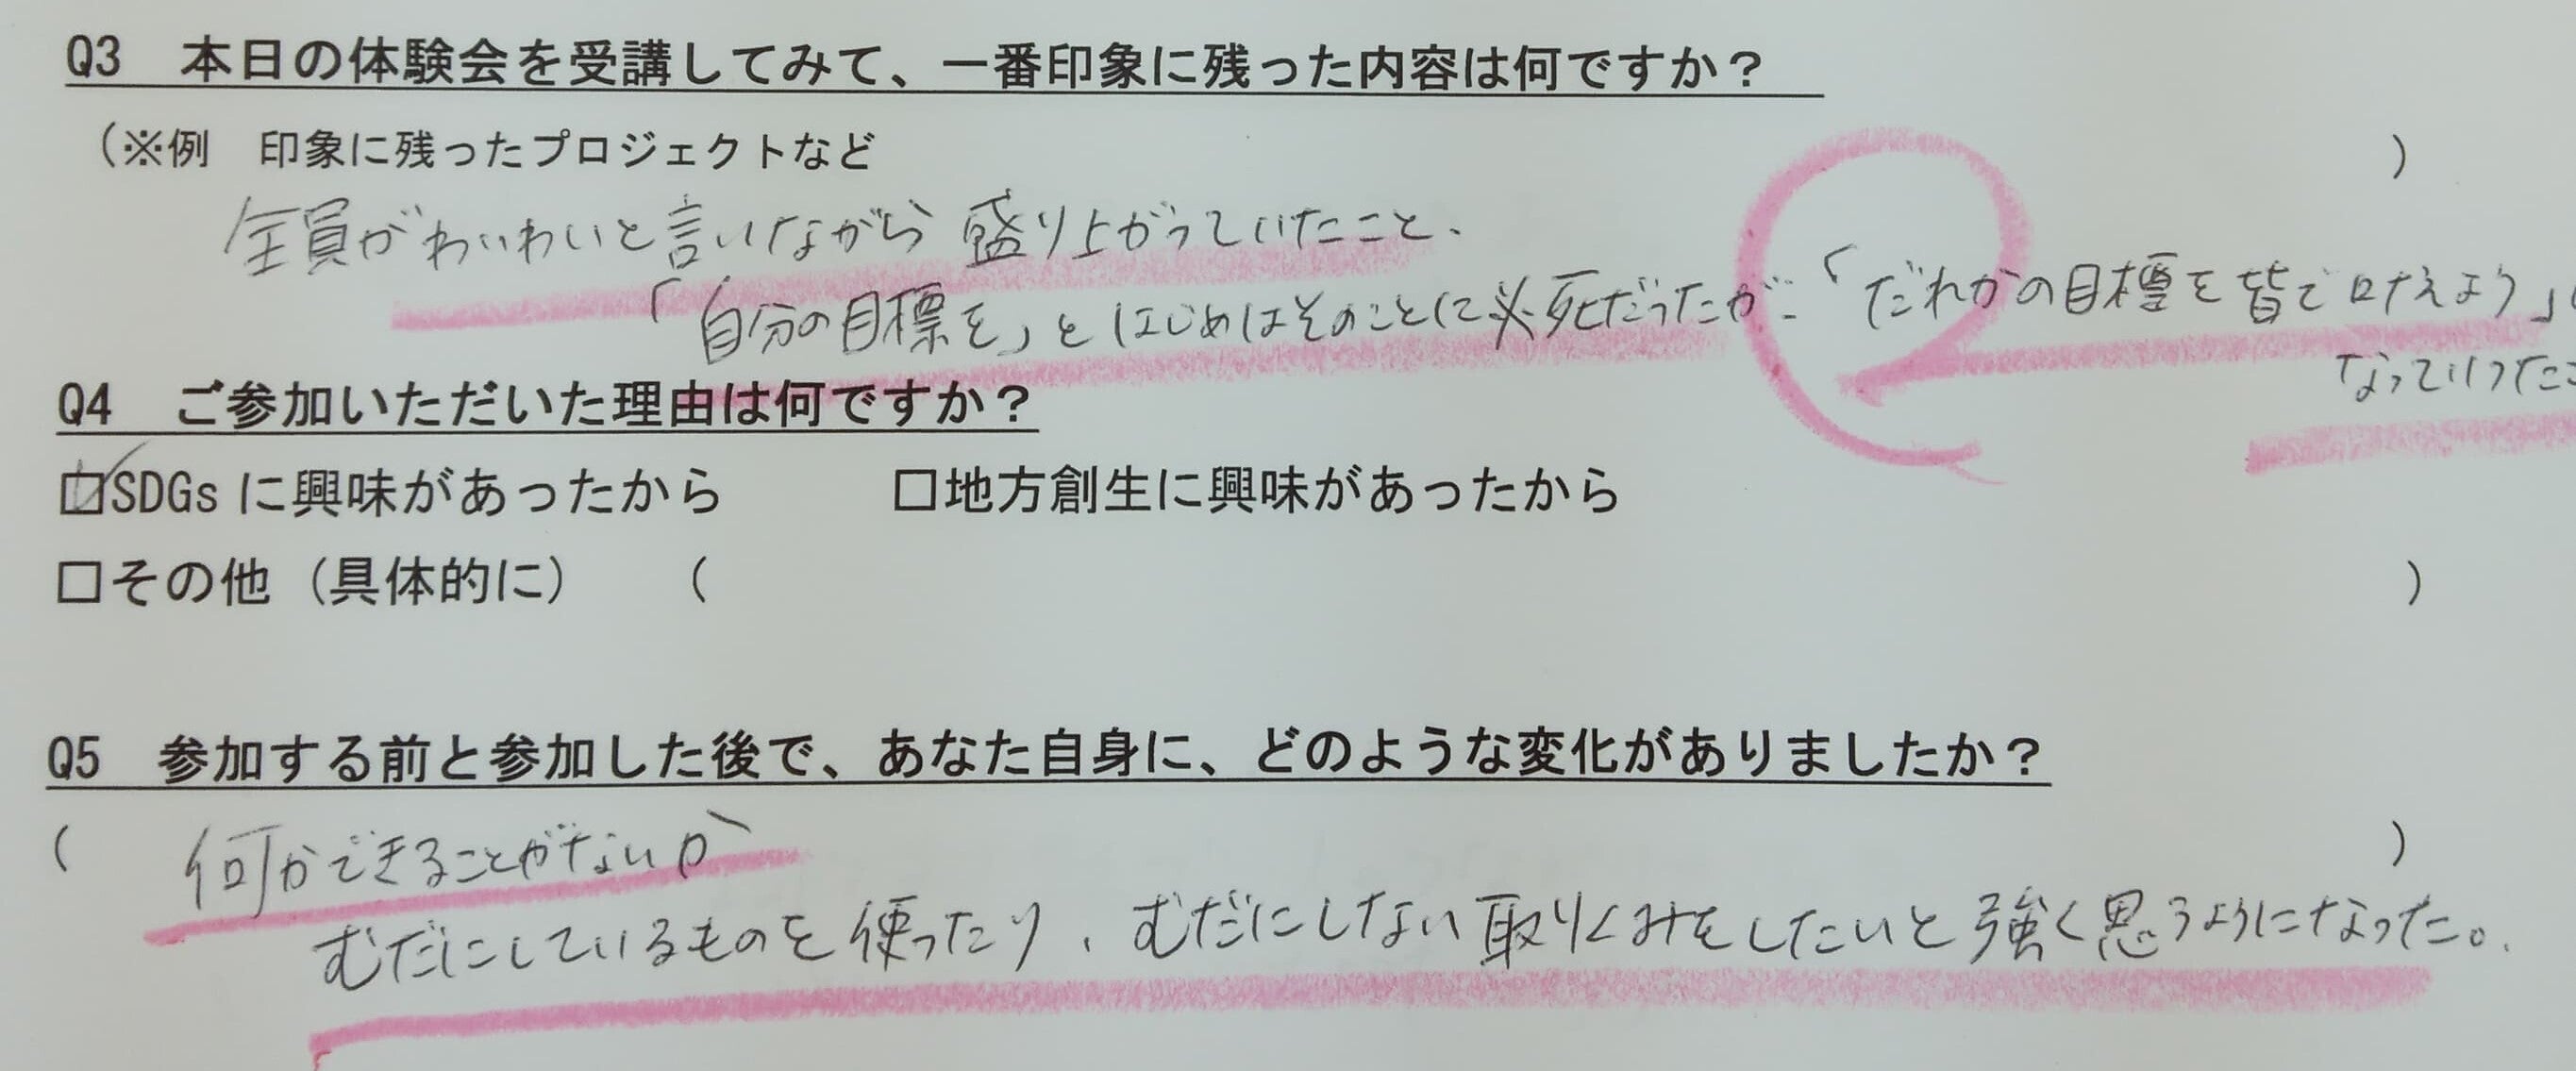 Q3　本日の体験会を受講してみて、一番印象に残った内容は何ですか？
（※例　印象に残ったプロジェクトなど　）
全員がわいわいと言いながら盛り上がっていたこと、
「自分の目標を」とはじめはそのことに必死だったが…「だれかの目標を皆で叶えよう」
なっていったこ
Q4　ご参加いただいた理由は何ですか？
☑SDGsに興味があったから　□地方創生に興味があったから
□その他（具体的に）（　）
Q5　参加する前と参加した後で、あなた自身に、どのような変化がありましたか？
（何かできることがないか　）
むだにしているものを使ったり、むだにしない取りくみをしたいと強く思うようになった。